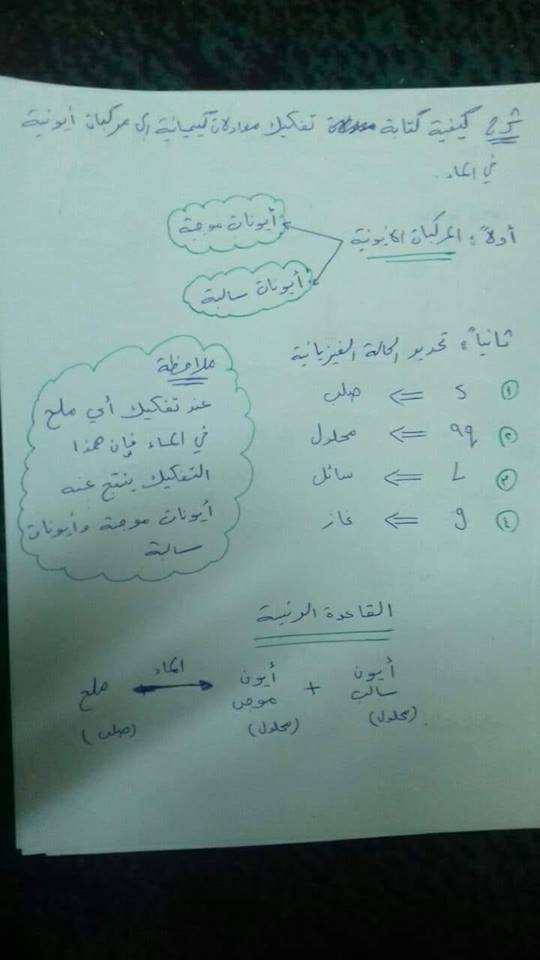 شرح كيفية كتابة تفكيك معادلات كيميائية إلى مركبات أيونية
في الماء.
أولاً: المركبات الأيونية
أيونات موجبة
أيونات سالبة
ثانياً: تحديد الحالة الفيزيائية
① s ⇐ صلب
② aq ⇐ محلول
③ L ⇐ سائل
④ g ⇐ غاز
ملاحظة
عند تفكيك أي ملح
في الماء فإن هذا
التفكيك ينتج عنه
أيونات موجبة وأيونات
سالبة
القاعدة الرئيسية
ملح ⟷ الماء أيون موجب + أيون سالب
(صلب) (محلول) (محلول)